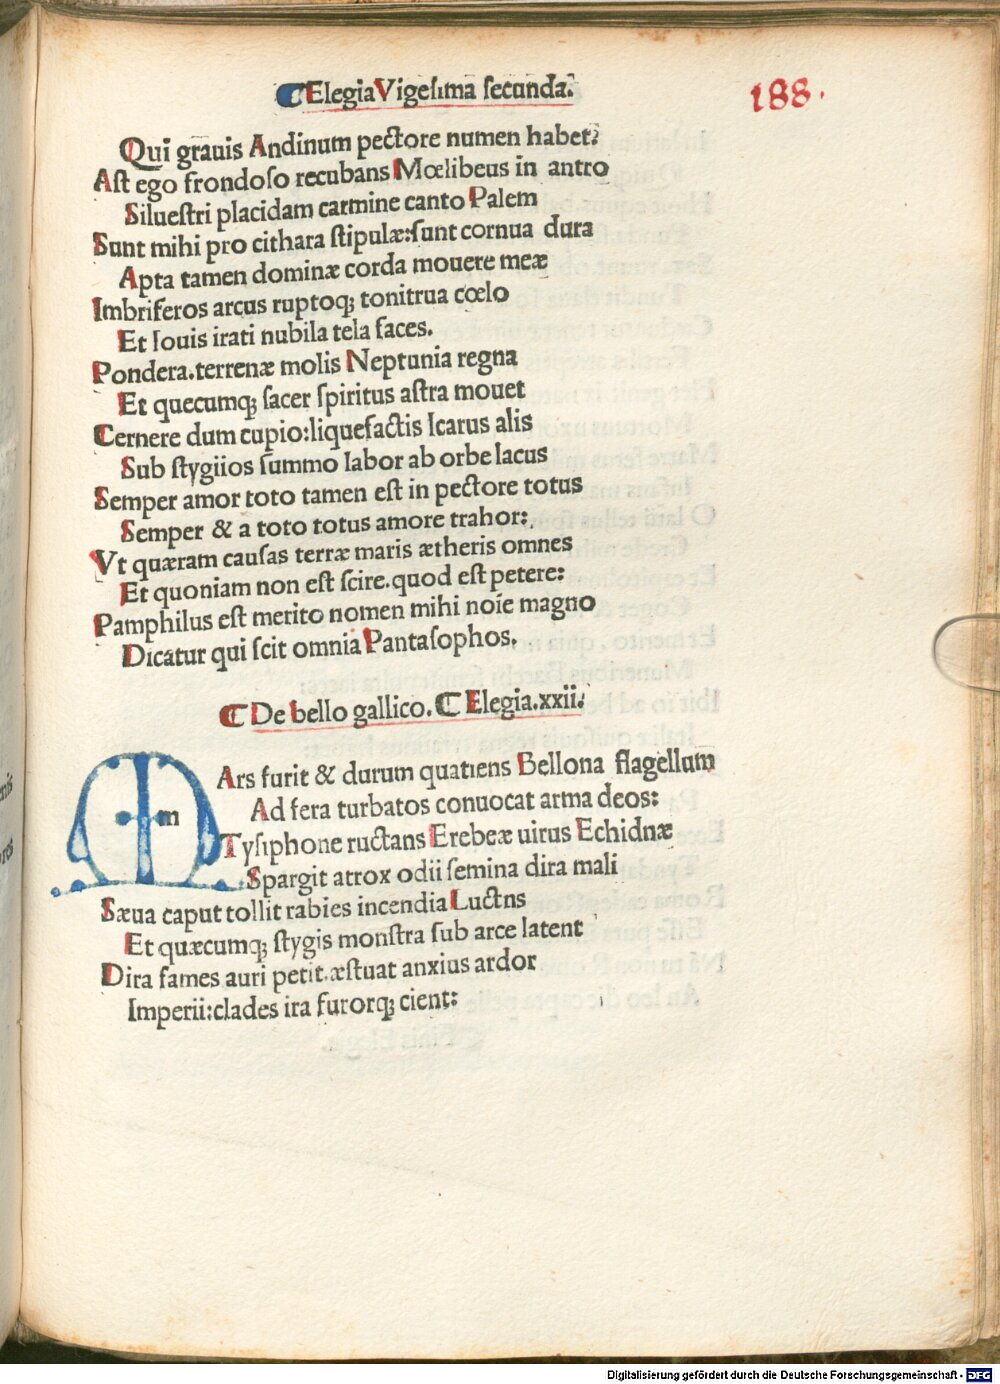 ⸿ElegiaVigesima secunda.
188.
Qui grauis Andinum pectore numen habet?
Ast ego frondoso recubans Mœlibeus in antro
Siluestri placidam carmine canto Palem
Sunt mihi pro cithara stipulæ:sunt cornua dura
Apta tamen dominæ corda mouere meæ
Imbriferos arcus ruptoqꝫ tonitrua cœlo
Et Iouis irati nubila tela faces.
Pondera.terrenæ molis Neptunia regna
Et quecumqꝫ sacer spiritus astra mouet
Cernere dum cupio:liquefactis Icarus alis
Sub stygiios summo labor ab orbe lacus
Semper amor toto tamen est in pectore totus
Semper & a toto totus amore trahor:
Vt quæram causas terræ maris ætheris omnes
Et quoniam non est scire.quod est petere:
Pamphilus est merito nomen mihi noīe magno
Dicatur qui scit omnia Pantasophos.
⸿ De bello gallico.⸿ Elegia.xxii.
m
MArs furit & durum quatiens Bellona flagellum
Ad fera turbatos conuocat arma deos:
Tysiphone ructans Erebeæ uirus Echidnæ
Spargit atrox odii semina dira mali
Sæua caput tollit rabies incendia Luctns
Et quæcumqꝫ stygis monstra sub arce latent
Dira fames auri petit.æstuat anxius ardor
Imperii:clades ira furorqꝫ cient:
Digitalisierung gefördert durch die Deutsche Forschungsgemeinschaft - DFG